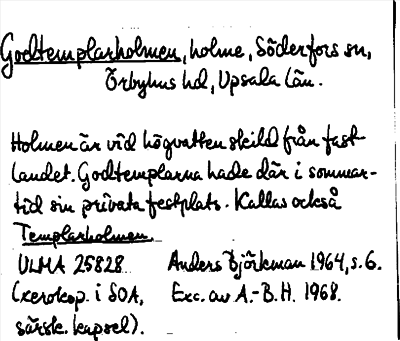 Godtemplarholmen, holme, Söderfors sn,
Örbyhus hd, Upsala län.
Holmen är vid högvatten skild från fast-
landet. Godtemplarna hade där i sommar-
tid sin privata festplats. Kallas också
Templarholmen.
ULMA 25828 Anders Björkman 1964, s. 6.
(xerokop. i SOA, Exc. av A.-B.H. 1968.
särsk. kapsel).